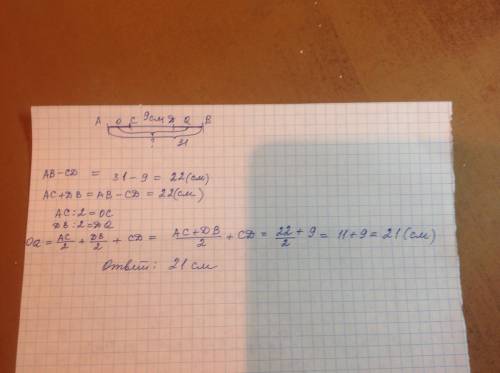 A O C 9см D Q B
? 31
AB-CD = 31-9 = 22(см)
AC+DB = AB-CD = 22(см)
AC:2=OC
DB:2=DQ
OQ = AC/2 + DB/2 + CD = (AC+DB)/2 + CD = 22/2 + 9 = 11+9 = 21(см)
Ответ: 21 см